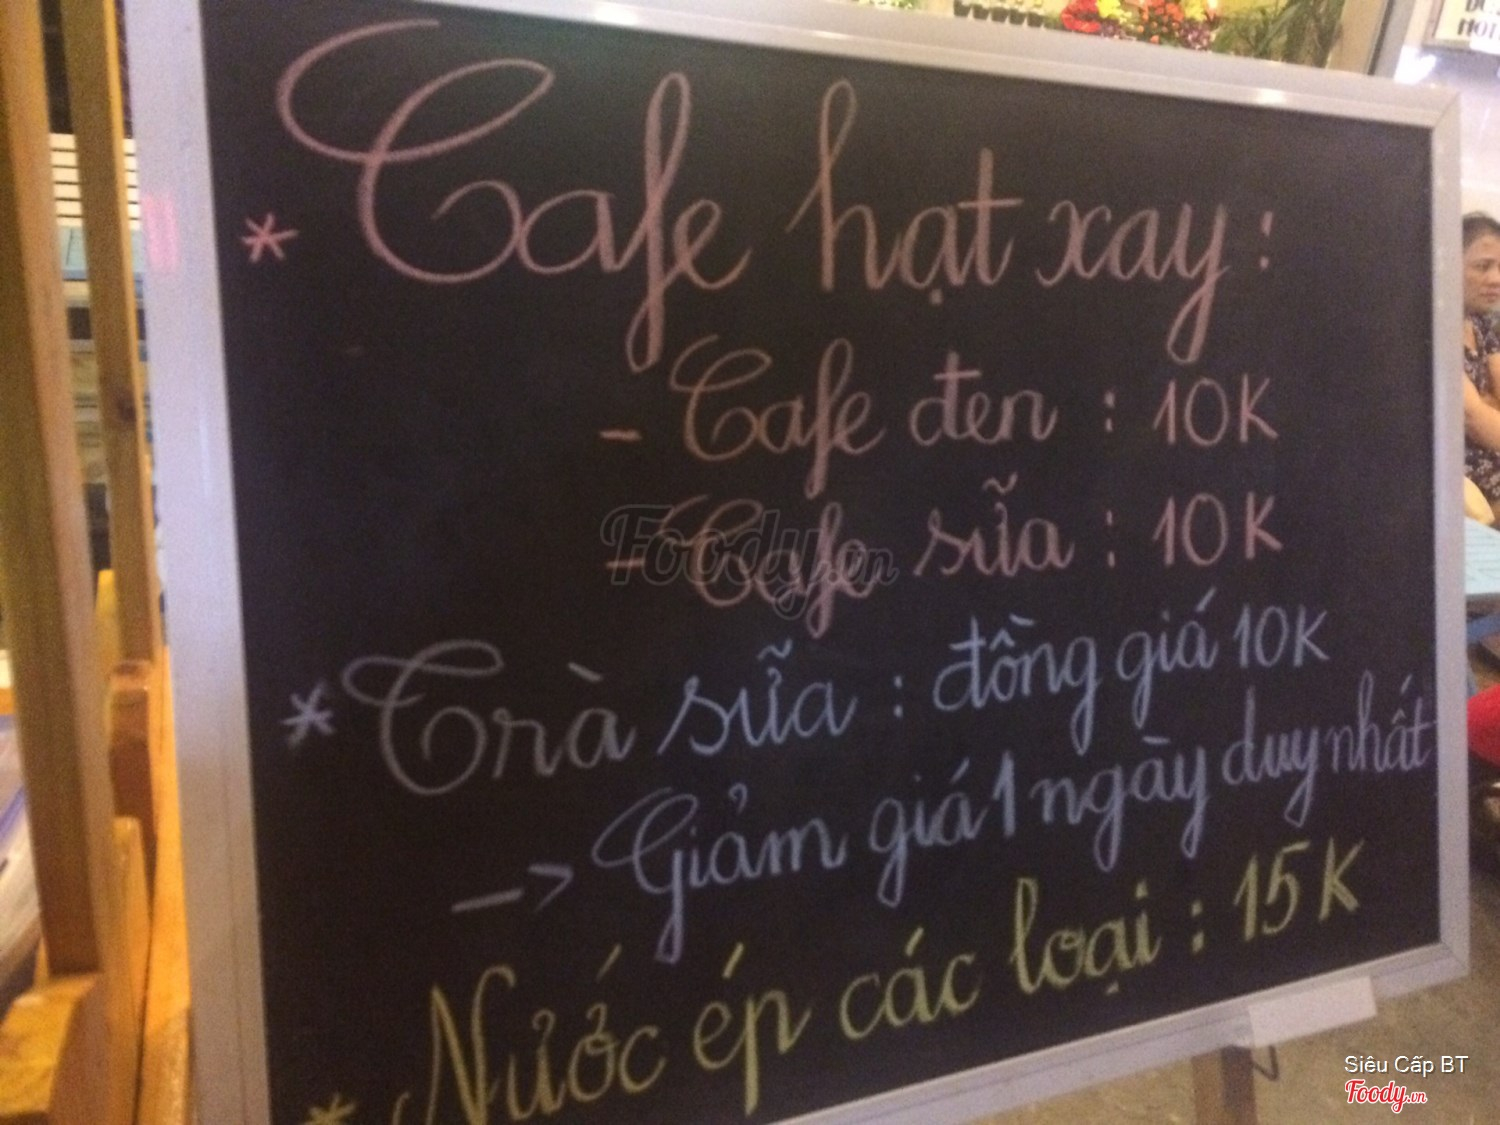 * Cafe hạt xay :
- Cafe đen : 10K
- Cafe sữa : 10K
* Trà sữa : đồng giá 10K
-> Giảm giá 1 ngày duy nhất
* Nước ép các loại : 15K
Foody.vn
Siêu Cấp BT
Foody.vn